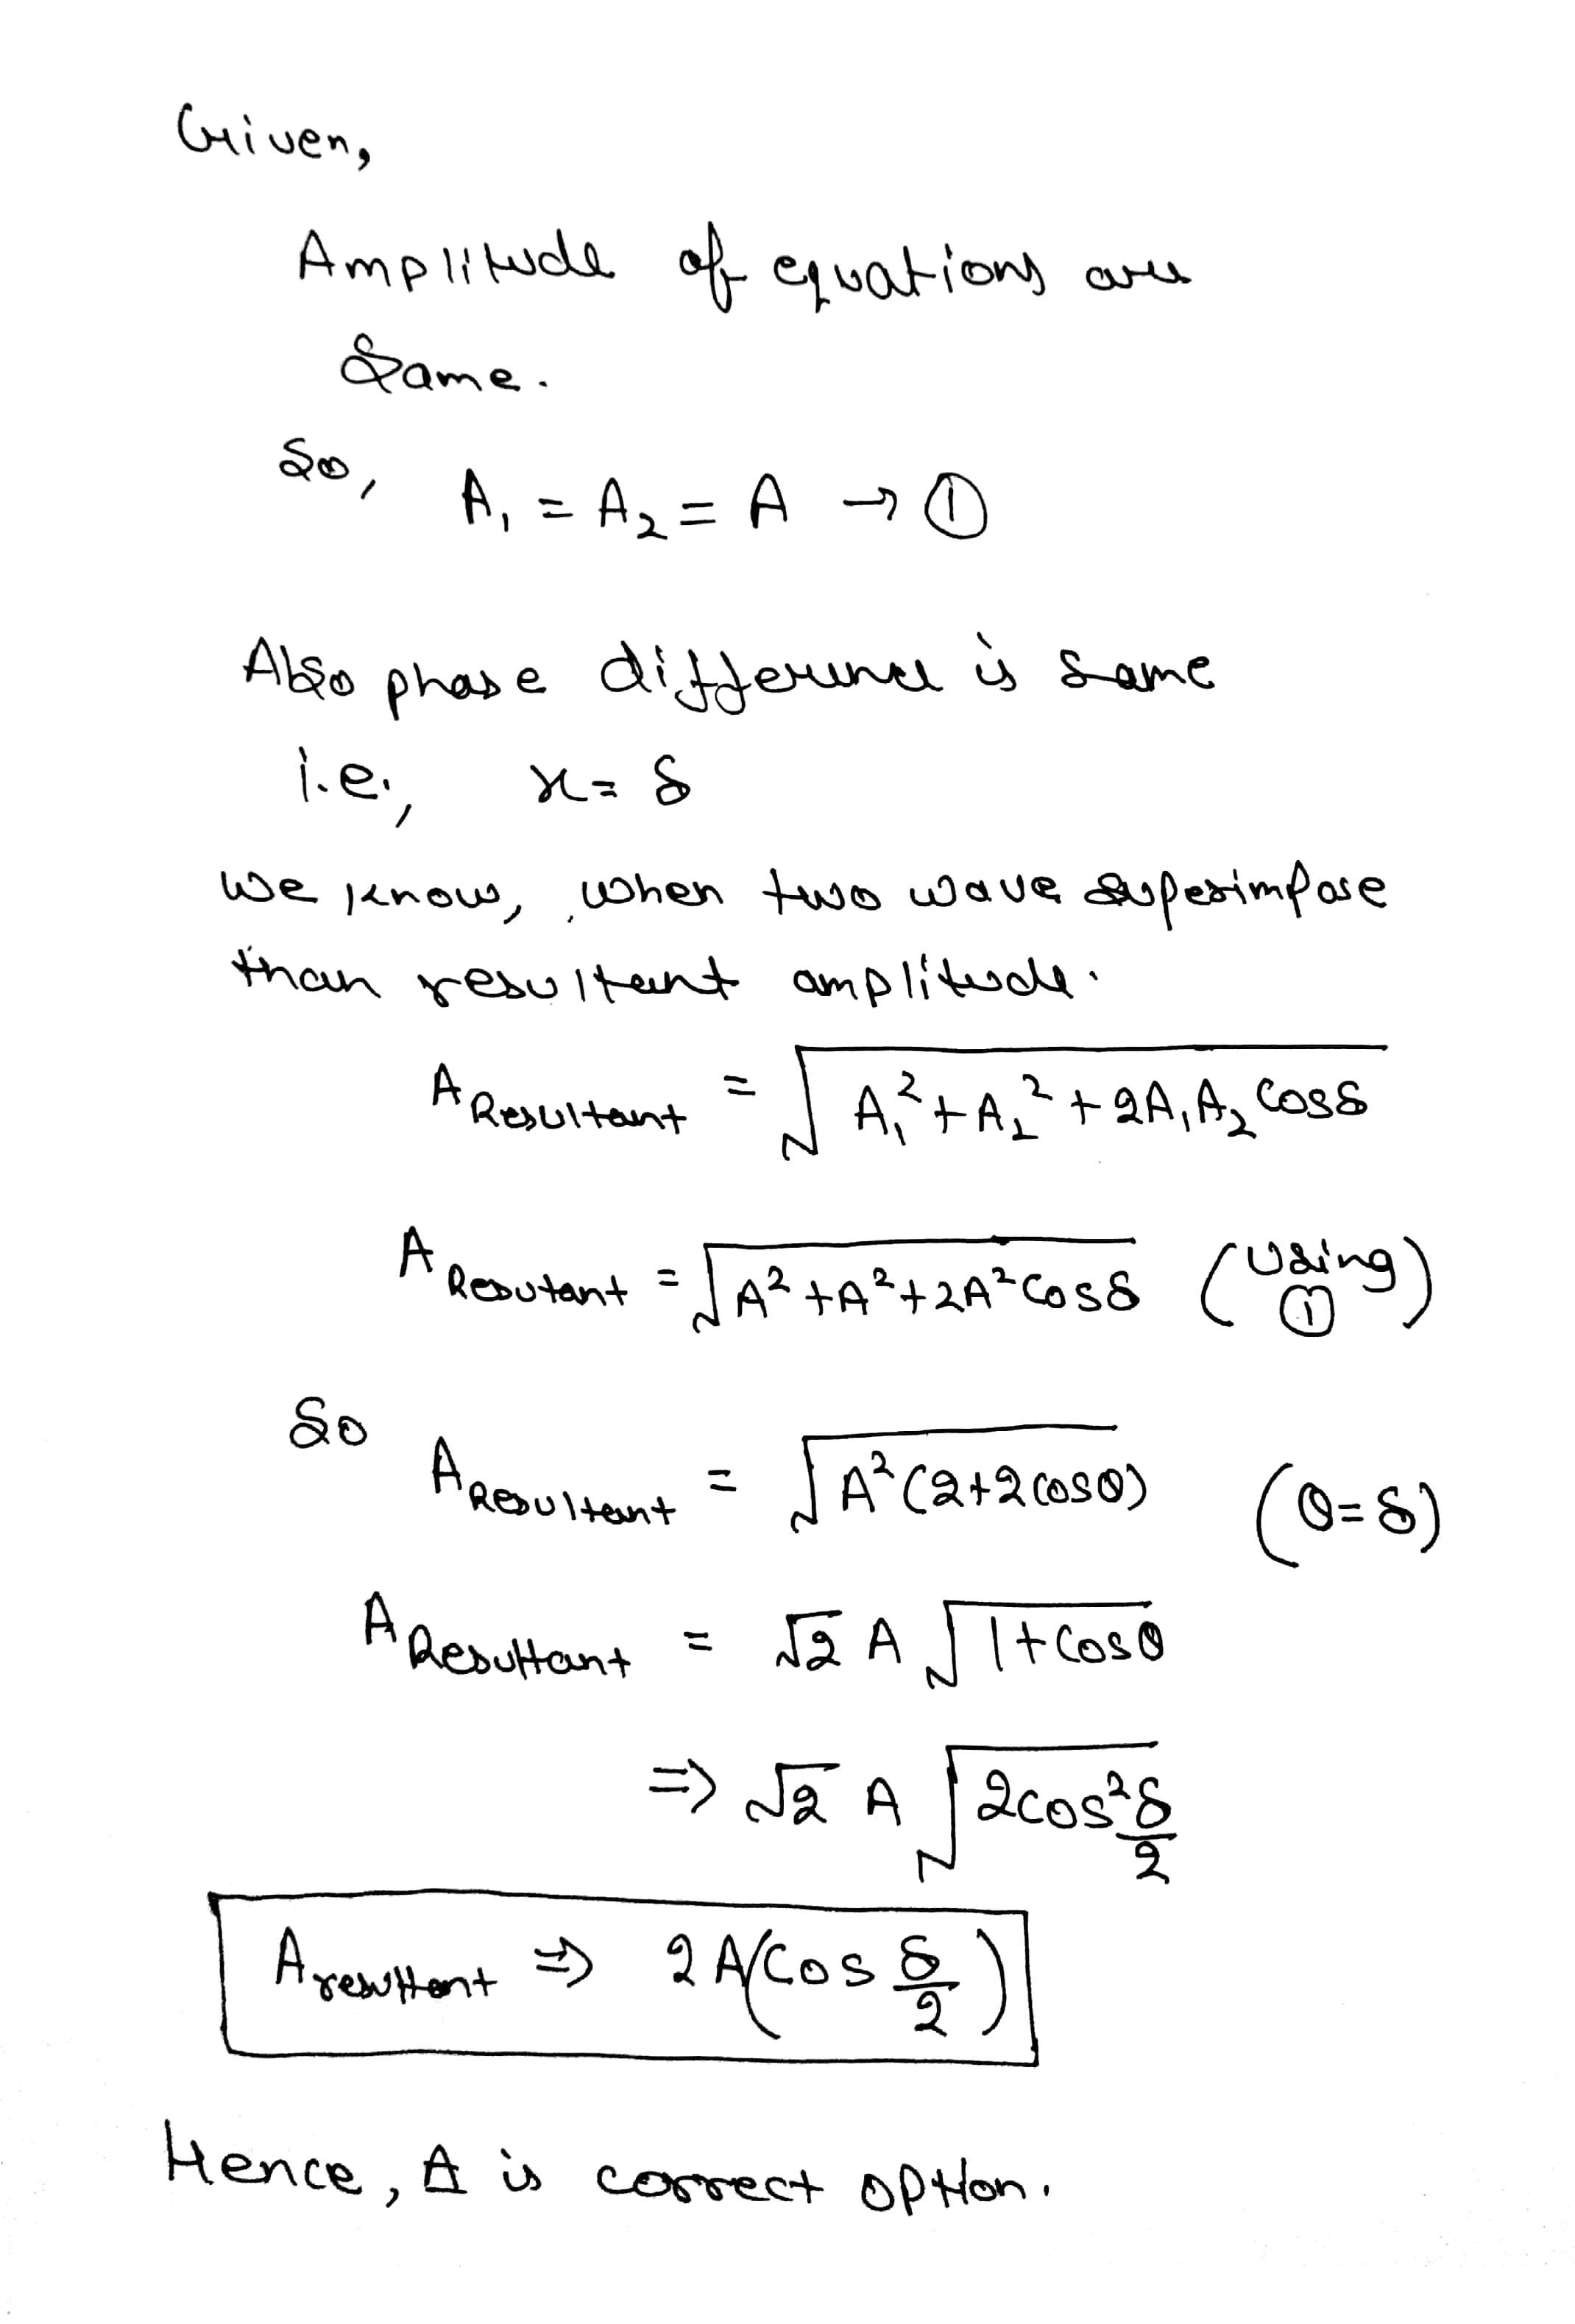 Given,
Amplitude of equations are
Same.
So, A₁ = A₂ = A → ①
Also phase difference is same
i.e., x = δ
We know, when two wave superimpose
than resultant amplitude.
A Resultant = √(A₁² + A₂² + 2A₁A₂ Cosδ)
A Resutant = √(A² + A² + 2A² Cosδ) (Using ①)
So A Resultant = √(A² (2+2cosθ)) (θ=δ)
A Resultant = √2 A √(1+Cosθ)
⇒ √2 A √(2cos² δ/2)
A resultant ⇒ 2A(Cos δ/2)
Hence, A is correct option.